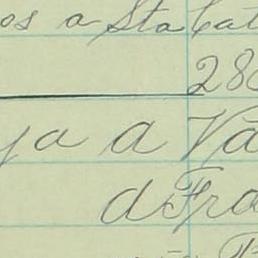 os a Sta Cat
280
ya a Va
d Fra